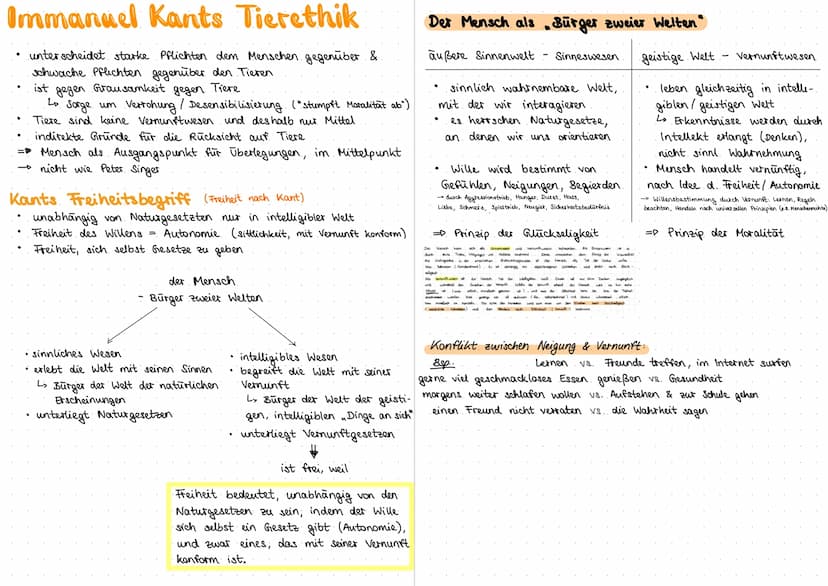 Immanuel Kants Tierethik
• unterscheidet starke Pflichten dem Menschen gegenüber &
schwache Pflichten gegenüber den Tieren
• ist gegen Grausamkeit gegen Tiere
↳ Sorge um Verrohung / Desensibilisierung ("stumpft Moralität ab")
• Tiere sind keine Vernunftwesen und deshalb nur Mittel
• indirekte Gründe für die Rücksicht auf Tiere
⇒ Mensch als Ausgangspunkt für Überlegungen, im Mittelpunkt
→ nicht wie Peter Singer
Kants Freiheitsbegriff (Freiheit nach Kant)
• unabhängig von Naturgesetzten nur in intelligibler Welt
• Freiheit des Willens = Autonomie (Sittlichkeit, mit Vernunft konform)
• Freiheit, sich selbst Gesetze zu geben
der Mensch
- Bürger zweier Welten
• sinnliches Wesen
• erlebt die Welt mit seinen Sinnen
↳ Bürger der Welt der natürlichen
Erscheinungen
• unterliegt Naturgesetzen
• intelligibles Wesen
• begreift die Welt mit seiner
Vernunft
↳ Bürger der Welt der geisti-
gen, intelligiblen „Dinge an sich"
• unterliegt Vernunftgesetzen
⇓
ist frei, weil
Freiheit bedeutet, unabhängig von den
Naturgesetzen zu sein, indem der Wille
sich selbst ein Gesetz gibt (Autonomie),
und zwar eines, das mit seiner Vernunft
konform ist.
Der Mensch als „Bürger zweier Welten"
äußere Sinnenwelt - Sinneswesen
• sinnlich wahrnembare Welt,
mit der wir interagieren
• es herrschen Naturgesetze,
an denen wir uns orientieren
• Wille wird bestimmt von
Gefühlen, Neigungen, Begierden
→ durch Aggressionstrieb, Hunger, Durst, Hass,
Liebe, Schmerz, Spieltrieb, Neugier, Sicherheitsbedürfnis
⇒ Prinzip der Glückseligkeit
geistige Welt - Vernunftwesen
• leben gleichzeitig in intelli-
giblen / geistigen Welt
↳ Erkenntnisse werden durch
Intellekt erlangt (Denken),
nicht sinnl. Wahrnehmung
• Mensch handelt vernünftig,
nach Idee d. Freiheit / Autonomie
→ Willensbestimmung durch Vernunft: Lernen, Regeln
beachten, Handeln nach universellen Prinzipien (z.B. Menschenrechte)
⇒ Prinzip der Moralität
Konflikt zwischen Neigung & Vernunft:
Bsp. Lernen vs. Freunde treffen, im Internet surfen
gerne viel geschmackloses Essen genießen vs. Gesundheit
morgens weiter schlafen wollen vs. Aufstehen & zur Schule gehen
einen Freund nicht verraten vs. die Wahrheit sagen